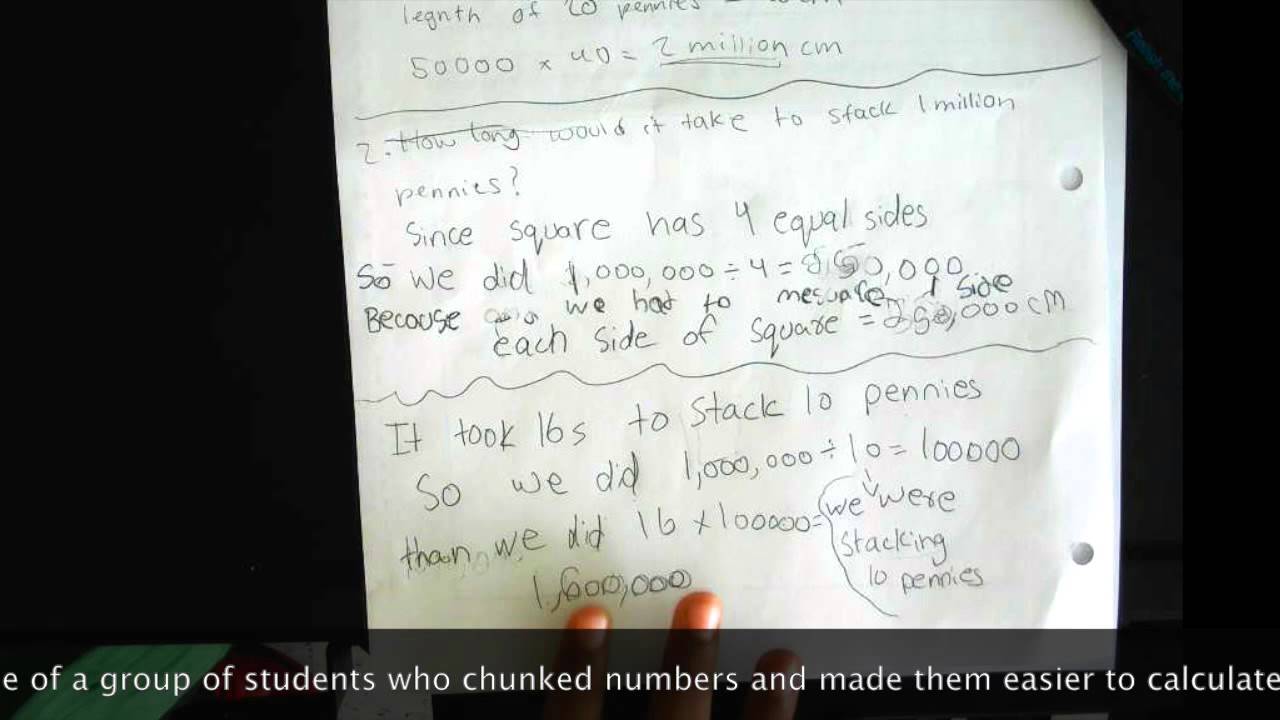 legnth of 20 pennies =
50000 x 40 = 2 million cm
2. How long would it take to stack 1 million
pennies?
Since square has 4 equal sides
So we did 1,000,000 ÷ 4 = 250,000
Becouse we had to mesuare 1 side
each side of square = 250,000 cm
It took 16s to stack 10 pennies
So we did 1,000,000 ÷ 10 = 100000
than we did 16 x 100000 =
1,600,000
we were
stacking
10 pennies
e of a group of students who chunked numbers and made them easier to calculate